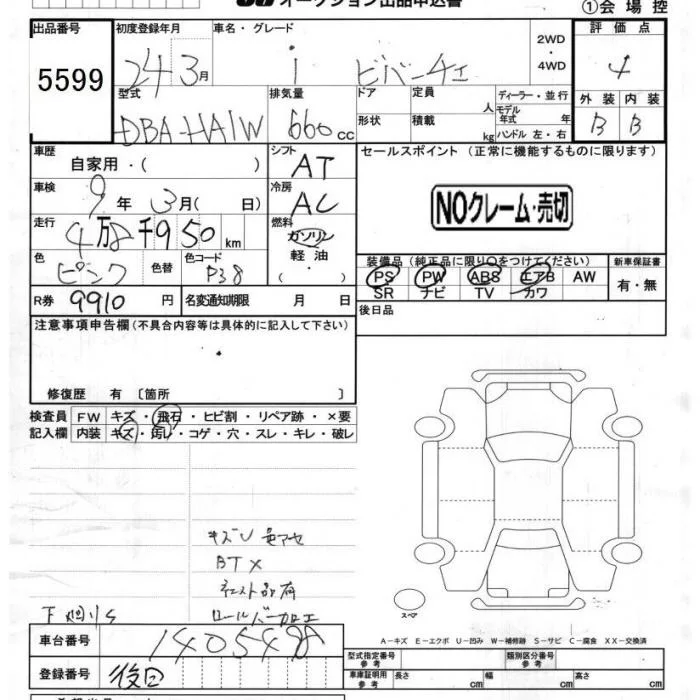 オークション出品申込書
①会場控
出品番号 初度登録年月 車名・グレード 評価点
5599 24 3月 i ビバーチェ 2WD・4WD 4
型式 排気量 ドア 定員 人 ディーラー・並行 外装 内装
DBA-HA1W 660cc 形状 積載 kg モデル年式 年 ハンドル 左・右 B B
車歴 自家用・( ) シフト AT セールスポイント (正常に機能するものに限ります)
車検 9年 3月( 日) 冷房 AC
NOクレーム・売切
走行 4万8千950km 燃料 ガソリン 軽油・
色 ピンク 色替 色コード P38
装備品 (純正品に限り○をつけてください) 新車保証書
PS PW ABS エアB AW 有・無
SR ナビ TV カワ
R券 9910円 名変通知期限 月 日
後日品
注意事項申告欄 (不具合内容等は具体的に記入して下さい)
修復歴 有 〔箇所 〕
検査員 FW キズ・飛石・ヒビ割・リペア跡・×要
記入欄 内装 キズ・汚レ・コゲ・穴・スレ・キレ・破レ
キズU
BT×
下廻りS
スペア
A-キズ E-エクボ U-凹み W-補修跡 S-サビ C-腐食 XX-交換済
車台番号 1405498
型式指定番号 参考 類別区分番号 参考
登録番号 後日
車庫証明用 参考 長さ cm 幅 cm 高さ cm